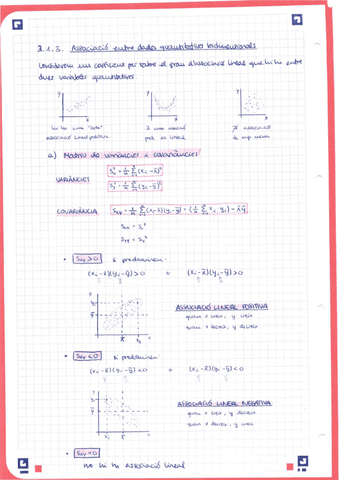 3.1.3. Associació entre dades quantitatives bidimensionals
Considerem un coeficient per saber el grau d'associació lineal que hi ha entre
dues variables quantitatives.
y y y
x x x
hi ha una "certa" ∃ una associació ∄ associació
associació lineal positiva però no lineal de cap mena
a) Matriu de variàncies i covariàncies
VARIÀNCIES
Sx² = 1/n Σ (xi - x̄)²
Sy² = 1/n Σ (yi - ȳ)²
COVARIÀNCIA Sxy = 1/n Σ (xi - x̄)(yi - ȳ) = (1/n Σ xi yi) - x̄ȳ
Sxx = Sx²
Syy = Sy²
• Sxy > 0 si predominen:
(xi - x̄)(yi - ȳ) > 0 o (xi - x̄)(yi - ȳ) > 0
ASSOCIACIÓ LINEAL POSITIVA
quan x creix, y creix
quan x decreix, y decreix
• Sxy < 0 si predominen
(xi - x̄)(yi - ȳ) < 0 o (xi - x̄)(yi - ȳ) < 0
ASSOCIACIÓ LINEAL NEGATIVA
quan x creix, y decreix
quan x decreix, y creix
• Sxy = 0
no hi ha associació lineal